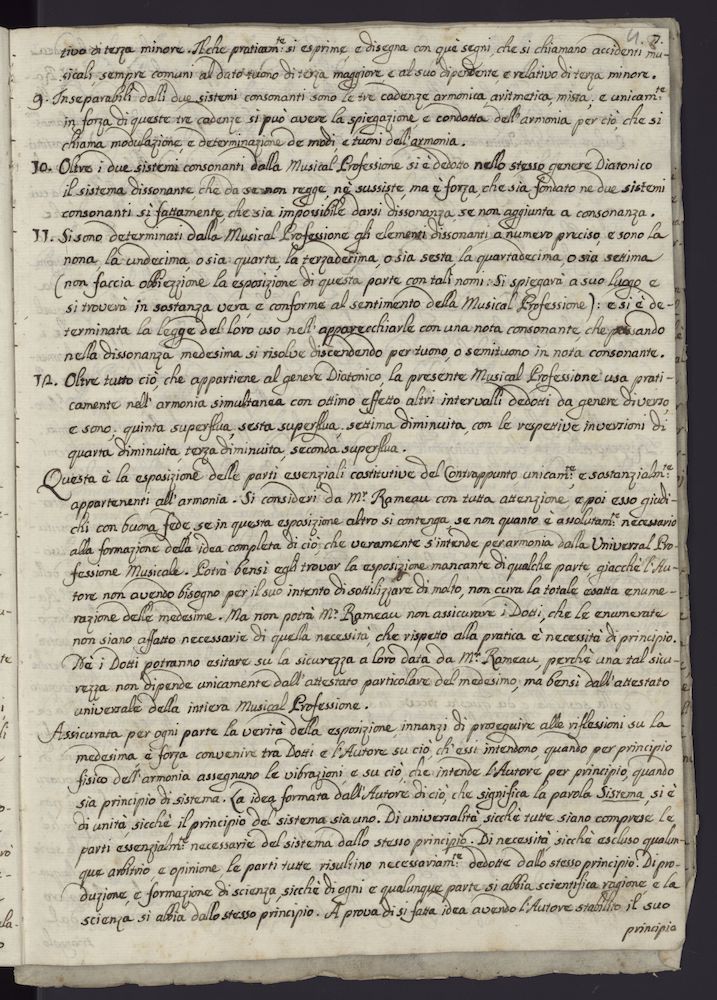 7.
tivo di terza minore. Il che praticam.te si esprime e disegna con què segni che si chiamano accidenti mu-
sicali, sempre comuni al dato tuono di terza maggiore e al suo dipendente e relativo di terza minore.
9. Inseparabili dalli due sistemi consonanti sono le tre cadenze armonica, aritmetica, mista. e unicam.te
in forza di queste tre cadenze si può avere la spiegazione e condotta dell'armonia per ciò che si
chiama modulazione e determinazione de modi e tuoni dell'armonia.
10. Oltre i due sistemi consonanti dalla Musical Professione si è dedotto nello stesso genere Diatonico
il sistema dissonante, che da se non regge nè sussiste, ma è forza, che sia fondato ne due sistemi
consonanti sì fattamente, che sia impossibile darsi dissonanza, se non aggiunta a consonanza.
11. Si sono determinati dalla Musical Professione gli elementi dissonanti a numero preciso, e sono la
nona, la undecima, o sia quarta, la terzadecima, o sia sesta, la quartadecima, o sia settima
(non faccia obbiezzione la esposizione di questa parte con tali nomi: Si spiegarà a suo luogo e
si troverà in sostanza vera, e conforme al sentimento della Musical Professione); e si è de-
terminata la legge del loro uso nell'apparecchiarle con una nota consonante, che passando
nella dissonanza medesima si risolve discendendo per tuono, o semituono in nota consonante.
12. Oltre tutto ciò che appartiene al genere Diatonico, la presente Musical Professione usa prati-
camente nell'armonia simultanea con ottimo effetto altri intervalli dedotti da genere diverso,
e sono, quinta superflua, sesta superflua, settima diminuita, con le respettive inverzioni di
quarta diminuita, terza diminuita, seconda superflua.
Questa è la esposizione delle parti essenziali costitutive del Contrappunto unicam.te e sostanzialm.te
appartenenti all'armonia. Si consideri da M.r Rameau con tutta attenzione, e poi esso giudi-
chi con buona fede se in questa esposizione altro si contenga, se non quanto è assolutam.te necessario
alla formazione della idea completa di ciò, che veramente s'intende per armonia dalla Universal Pro-
fessione Musicale. Potrà bensì egli trovar la esposizione mancante di qualche parte, giacchè l'Au-
tore non avendo bisogno per il suo intento di sottilizzare di molto, non cura la totale esatta enume-
razione delle medesime. Ma non potrà M.r Rameau non assicurare i Dotti, che le enumerate
non siano affatto necessarie di quella necessità, che rispetto alla pratica è necessità di principio.
Nè i Dotti potranno esitare su la sicurezza a loro data da M.r Rameau, perchè una tal sicu-
rezza non dipende unicamente dall'attestato particolare del medesimo, ma bensì dall'attestato
universale della intiera Musical Professione.
Assicurata per ogni parte la verità della esposizione innanzi di proseguire alle riflessioni su la
medesima è forza convenire trà Dotti e l'Autore su ciò, ch'essi intendono, quando per principio
fisico dell'armonia assegnano le vibrazioni e su ciò, che intende l'Autore per principio, quando
sia principio di sistema. La idea formata dall'Autore di ciò, che significa la parola Sistema, si è
di unità sicchè il principio del sistema sia uno. Di universalità sicchè tutte siano comprese le
parti essenzialm.te necessarie del sistema dallo stesso principio. Di necessità sicchè escluso qualun-
que arbitrio, e opinione le parti tutte risultino necessariam.te dedotte dallo stesso principio. Di pro-
duzione, e formazione di scienza, sicchè di ogni e qualunque parte si abbia scientifica ragione e la
scienza si abbia dallo stesso principio. A prova di sì fatta idea avendo l'Autore stabilito il suo
principio